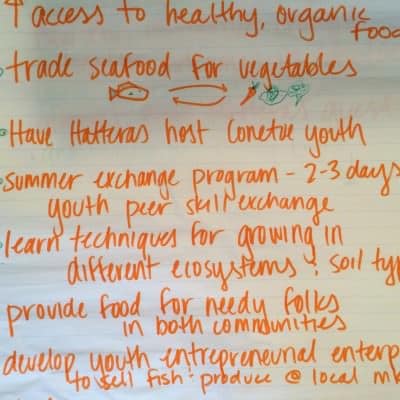 ↑ access to healthy, organic
food
trade seafood for vegetables
Have Hatteras host Conetoe youth
summer exchange program - 2-3 days
youth peer skill exchange
learn techniques for growing in
different ecosystems & soil typ
provide food for needy folks
in both communities
develop youth entrepreneurial enterp
to sell fish & produce @ local mk